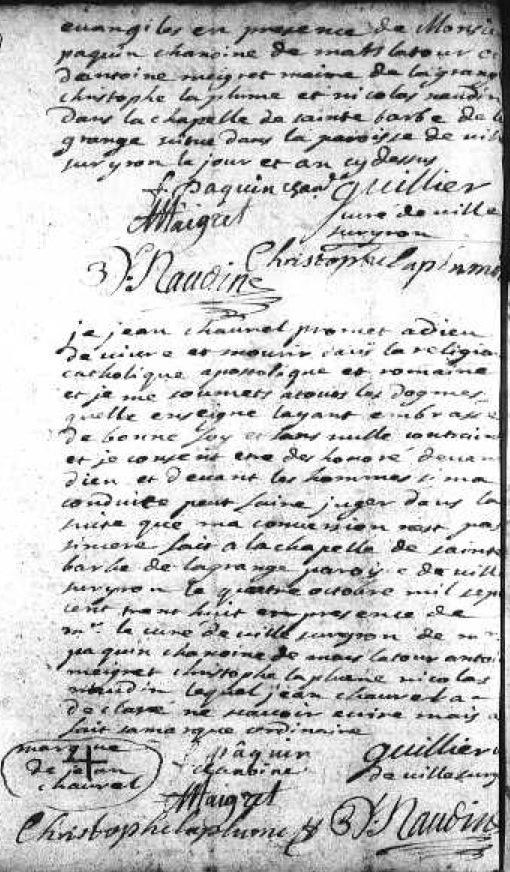 evangiles en presence de Monsie
paquin chanoine de mats latour e
dantoine meigret maire de lagrang
christophe la plume et nicolas naudin
dans la chapelle de sainte barbe de l
grange situe dans la paroisse de vil
sur yron le jour et an cy dessus
f. paquin chan.ne Guillier
AMaigret curé de ville
sur yron
Christophe laplume
N. Naudine
je jean chaurel promet a dieu
de vivre et mourir dans la religio
catholique apostolique et romaine
et je me soumets a tous les dogmes
quelle enseigne layant embrasse
de bonne foy et sans nulle contrain
et je consent etre des honoré devan
dieu et devant les hommes si ma
conduite peut faire juger dans la
suite que ma conversion nest pas
sincere fait a la chapelle de sainte
barbe de lagrange paroisse de vill
sur yron le quatre octobre mil sept
cent trent huit en presence de
mr le cure de ville sur yron de mr
paquin chanoine de mars latour antoi
meigret christophe la plume nicolas
naudin lequel jean chaurel a
declaré ne scavoir ecrire mais a
fait sa marque ordinaire
marque de jean chaurel
f. pâquin chanoine
Guillier c
de ville sur y
AMaigret
Christophe laplume N. Naudin